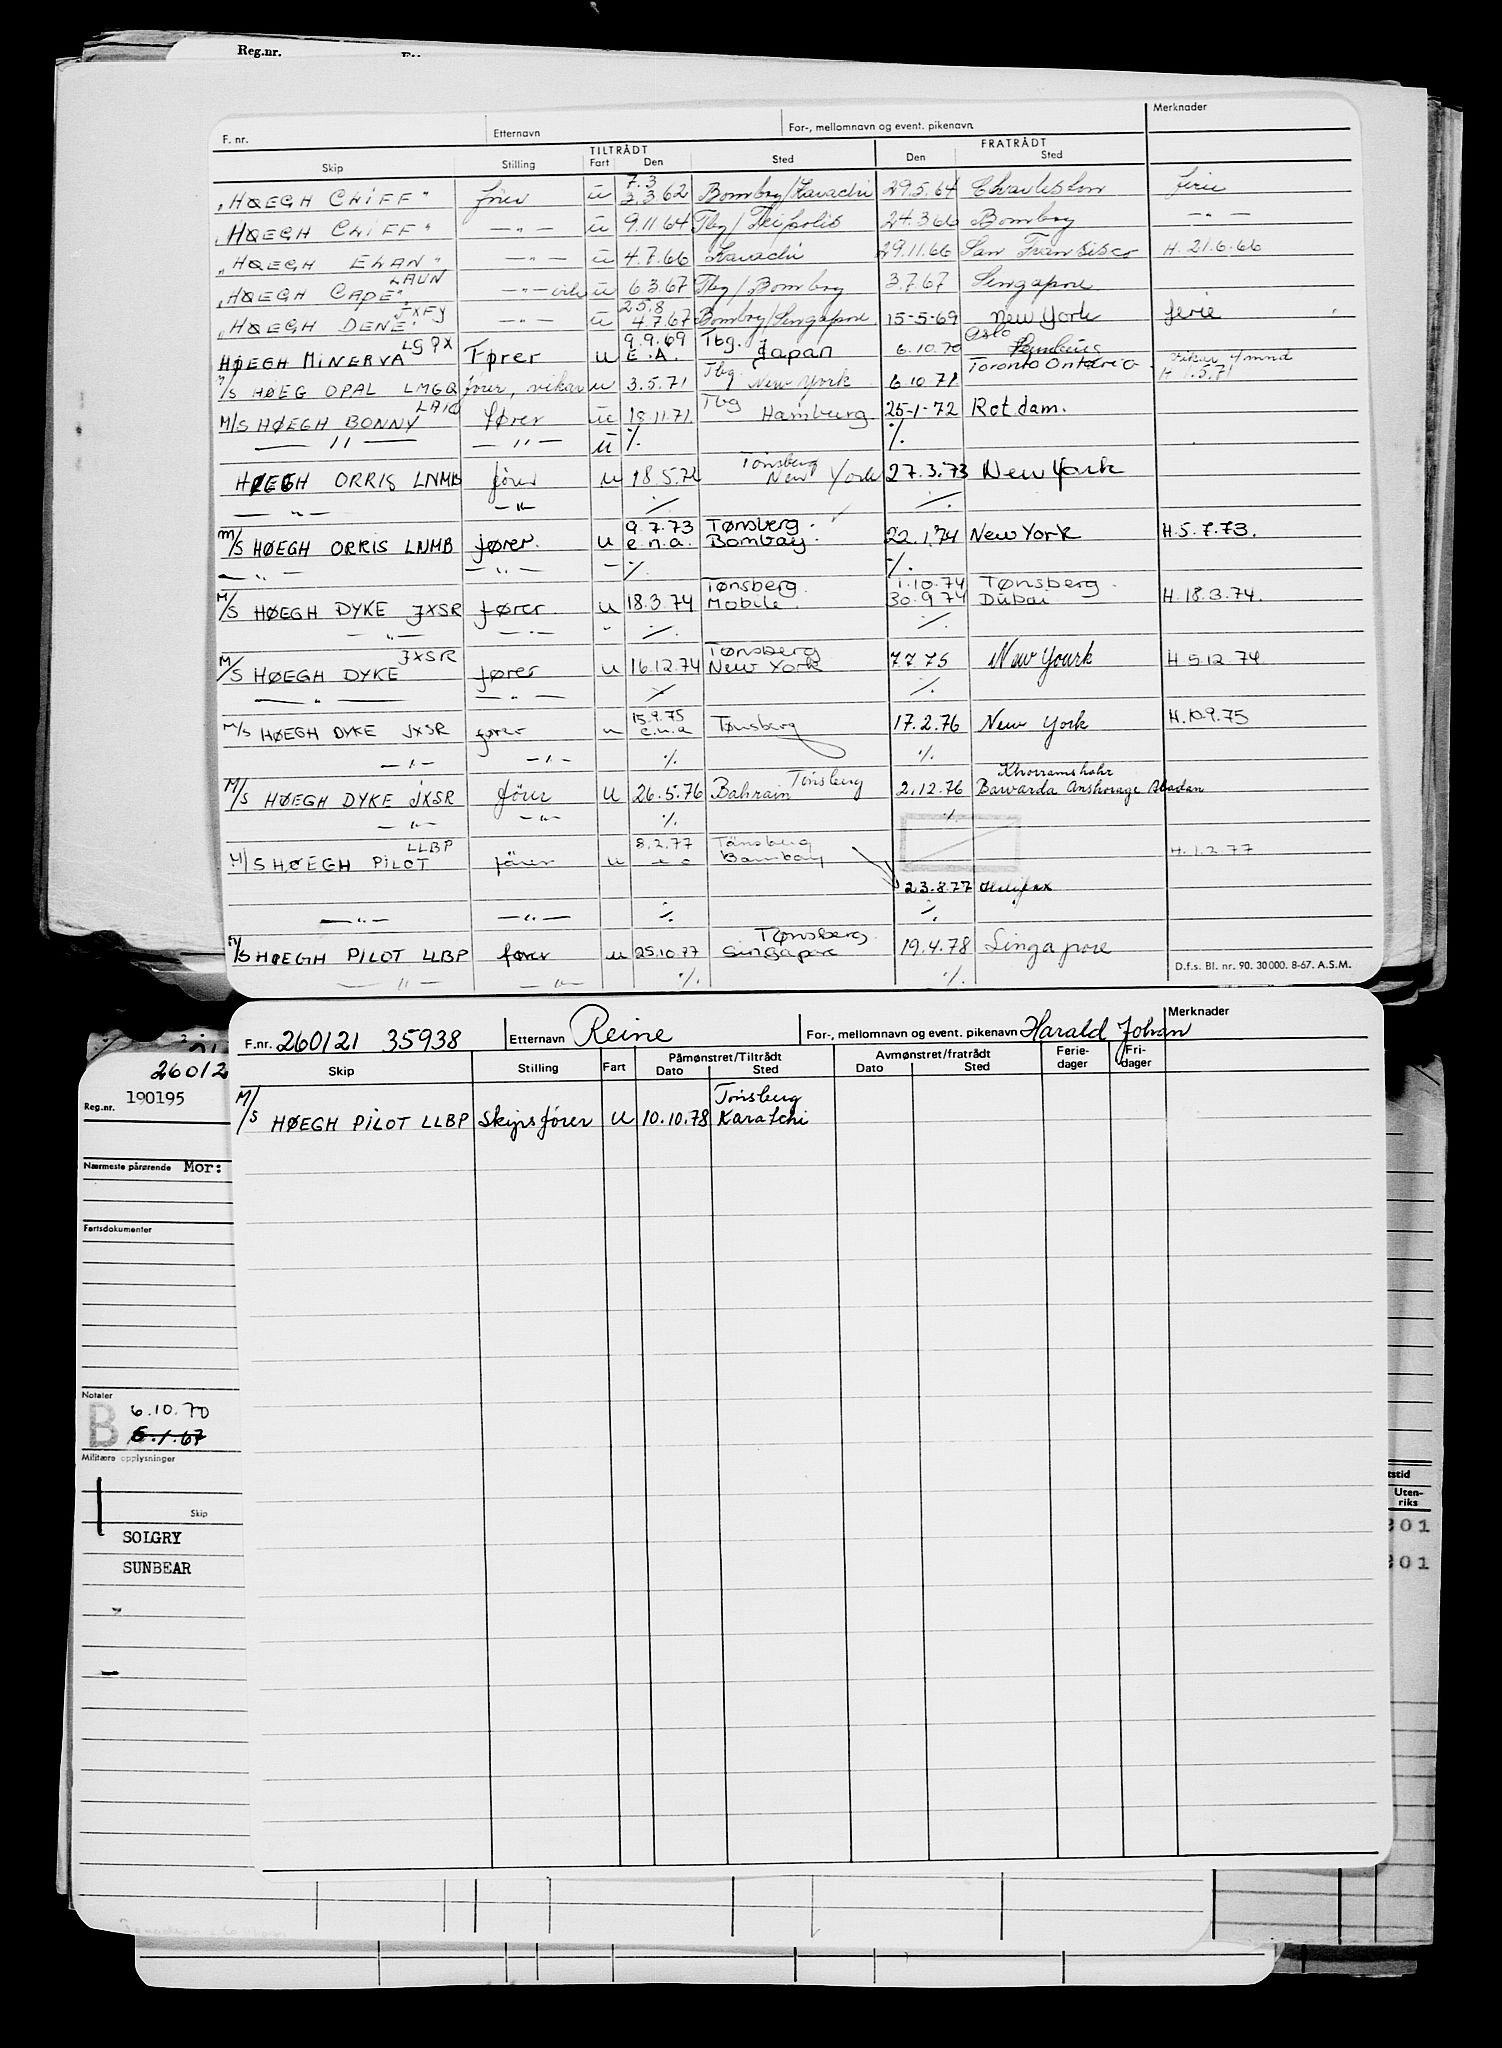 Reg.nr.
F. nr. Etternavn For-, mellomnavn og event. pikenavn. Merknader
TILTRÅDT FRATRÅDT
Skip Stilling Fart Den Sted Den Sted
7.3
"HØEGH CHIFF" fører u 3.3 62 Bombay/Karachi 29.5.64 Charleston ferie
"HØEGH CHIFF" — " — u 9.11 64 Tbg/Tripolis 24.3 66 Bombay — " —
"HØEGH ELAN" — " — u 4.7.66 Karachi 29.11.66 San Fransisco H. 21.6.66
LAUN
"HØEGH CAPE" — " — vik. u 6 3.67 Tbg/Bombay 3.7.67 Singapore
JXFY 25.8
"HØEGH DENE" — " — u 4.7.67 Bombay/Singapore 15-5-69 New York ferie
LGPX 9.9.69 Tbg. Oslo
HØEGH MINERVA Fører u E.A. Japan 6.10.70 Hamburg
M/S HØEG OPAL LMGQ fører, vikar u 3.5.71 Tbg. New York 6 10.71 Toronto Ontario Vikar 4 mnd
H 1.5.71
M/S HØEGH BONNY fører u 18.11.71 Tbg Hamburg 25-1-72 Rotdam.
— " — — " — u %. %.
HØEGH ORRIS LNMB fører u 18.5.72 Tønsberg New York 27.3.73 New York
— " — — " — % %.
9.7.73 Tønsberg.
M/S HØEGH ORRIS LNMB fører. u e.n.a. Bombay. 22.1.74 New York H.5.7.73.
— " — — " — — %. %.
Tønsberg. 1.10.74 Tønsberg.
M/S HØEGH DYKE JXSR fører. u 18.3.74 Mobile. 30.9.74 Dubai H.18.3.74.
— " — — " — - %. %.
JXSR Tønsberg
M/S HØEGH DYKE fører u 16.12.74 New York 7.7 75 New Yourk H 5.12 74
— " — — " — % %.
15.9.75
M/S HØEGH DYKE JXSR fører u e.n.a Tønsberg 17.2.76 New York H.10.9.75
— " — — " — % %.
Tønsberg Khorramshahr
M/S HØEGH DYKE JXSR fører u 26.5.76 Bahrain 2.12.76 Bawarda Anshorage Abadan
— " — — " — %. %.
LLBP 8.2.77 Tønsberg
M/S HØEGH PILOT fører u Bombay H.1.2.77
23.8.77 Halifax
— " — — " — % %.
Tønsberg.
M/S HØEGH PILOT LLBP fører u 25.10.77 Singapore 19.4.78 Singapore
— " — — " — %. %.
D.f.s. Bl. nr. 90. 30000. 8-67. A.S.M.
F.nr. 260121 35938 Etternavn Reine For-, mellomnavn og event. pikenavn Harald Johan Merknader
Skip Stilling Fart Påmønstret/Tiltrådt Avmønstret/fratrådt Ferie-dager Fri-dager
Dato Sted Dato Sted
Tønsberg
M/S HØEGH PILOT LLBP Skipsfører u 10.10.78 Karatchi
26012
Reg.nr. 190195
Nærmeste pårørende Mor:
Fartsdokumenter
Notater
B 6.10.70
6.1.67
Militære opplysninger
Skip
SOLGRY
SUNBEAR
tstid
Uten-
riks
301
301